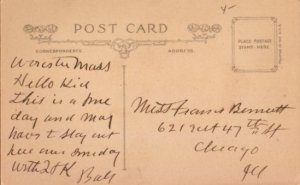 POST CARD
CORRESPONDENCE
ADDRESS.
PLACE POSTAGE
STAMP HERE
Worcester Mass
Hello Kid
This is a fine
day and may
have to stay out
here one day
with
Miss Frances Bennett
621 West 47th St
Chicago
Ill